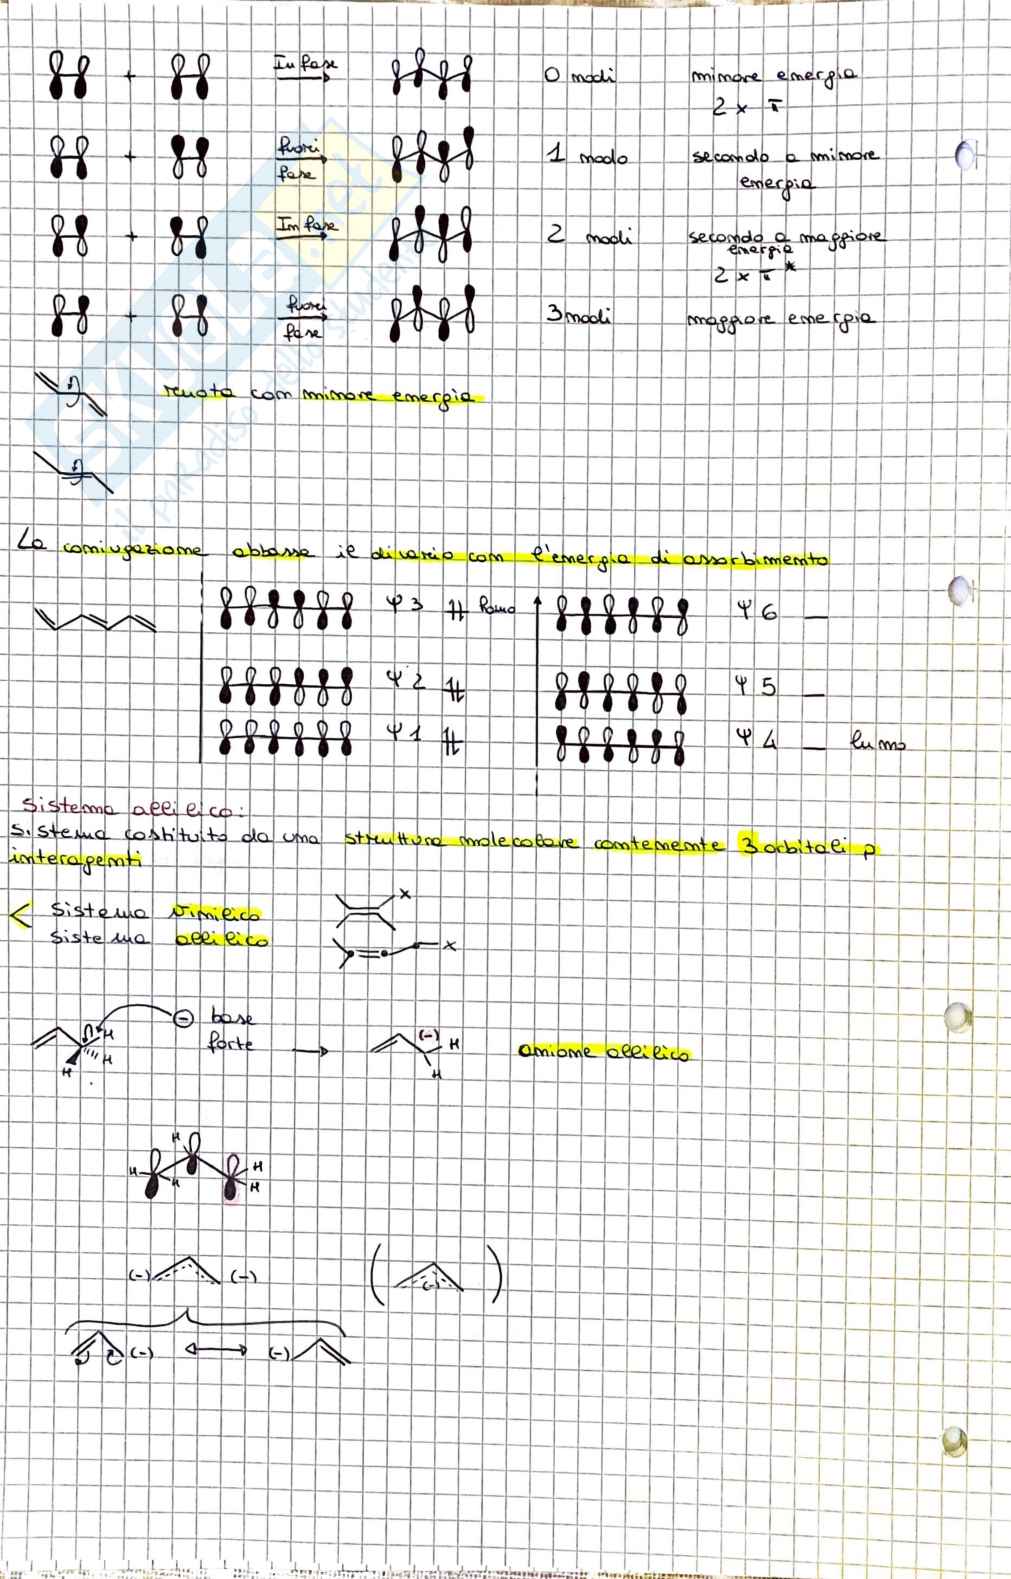 + In fase 0 nodi minore energia
2 x π
+ fuori fase 1 nodo secondo a minore
energia
+ In fase 2 nodi secondo a maggiore
energia
2 x π*
+ fuori fase 3 nodi maggiore energia
ruota con minore energia
La coniugazione abbassa il divario con l'energia di assorbimento
Ψ3 homo Ψ6
Ψ2 Ψ5
Ψ1 Ψ4 lumo
sistema allilico:
sistema costituito da una struttura molecolare contenente 3 orbitali p
interagenti
sistema vinilico X
sistema allilico X
H H H - base
forte (-) H H anione allilico
H H H H H
(-) (-) (-)
(-) (-)
SKUOLA.net
il paradiso dello studente